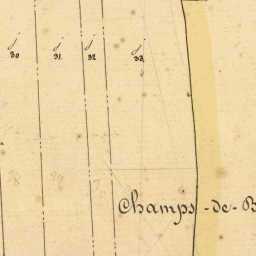 j j j j
30 31 32 33
Champs-de-B